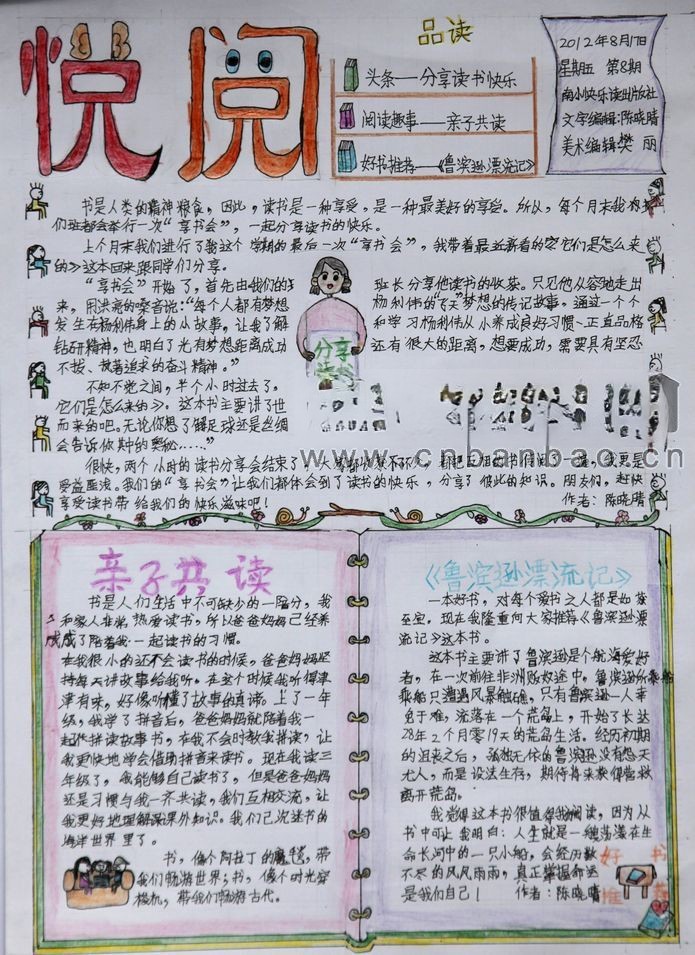 悦阅
品读
头条——分享读书快乐
阅读趣事——亲子共读
好书推荐——《鲁滨逊漂流记》
2012年8月17日
星期五 第8期
南小快乐读出版社
文字编辑:陈晓晴
美术编辑樊 丽
书是人类的精神粮食,因此,读书是一种享受,是一种最美好的享受。所以,每个月末我
们班都会举行一次“享书会”,一起分享读书的快乐。
上个月末我们进行了我这个学期的最后一次“享书会”,我带着最近新看的
的》这本回来跟同学们分享。
“享书会”开始了,首先由我们的 班长分享他读书的收获。只见他从容地走出
来,用洪亮的嗓音说:“每个人都有梦想 杨利伟的“飞天”梦想的传记故事,通过一个个
发生在杨利伟身上的小故事,让我了解 和学习杨利伟从小养成良好习惯、正直品格
钻研精神,也明白了光有梦想距离成功 还有很大的距离,想要成功,需要具有坚忍
不拔、执著追求的奋斗精神。”
分享
不知不觉之间,半个小时过去了。
它们是怎么来的》。这本书主要讲了世
而来的吧。无论你想了解足球还是丝绸
会告诉你其中的奥秘……”
www.cnbanbao.cn
很快,两个小时的读书分享会结束了,
受益匪浅。我们的“享书会”让我们都体会到了读书的快乐,分享了彼此的知识。朋友们,赶快
享受读书带给我们的快乐滋味吧! 作者:陈晓晴
亲子共读
书是人们生活中不可缺少的一部分,我
和家人非常热爱读书,所以爸爸妈妈已经养
成了陪着我一起读书的习惯。
在我很小的还不会读书的时候,爸爸妈妈坚
持每天讲故事给我听。在这个时候我听得津
津有味,好像听懂了故事的真谛。上了一年
级,我学了拼音后,爸爸妈妈就陪着我一
起借拼读故事书,在我不会时教我拼读,让
我更快地学会借助拼音来读书。现在我读三
年级了,我能够自己读书了,但是爸爸妈妈
还是习惯与我一齐共读,我们互相交流,让
我更好地理解课外知识。我们已沉迷书的
海洋世界里了。
书,像个阿拉丁的魔毯,带
我们畅游世界;书,像个时光穿
梭机,带我们畅游古代。
《鲁滨逊漂流记》
一本好书,对每个爱书之人都是如获
至宝。现在我隆重向大家推荐《鲁滨逊漂
流记》这本书。
这本书主要讲了鲁滨逊是个航海爱好
者,在一次前往非洲贩奴途中,鲁滨逊所乘船
乘船只遭遇风暴触礁,只有鲁滨逊一人幸
免于难,流落在一个荒岛上,开始了长达
28年2个月零19天的荒岛生活。经历初期
的沮丧之后,孤独无依的鲁滨逊没有怨天
尤人,而是设法生存,期待将来获得营救
离开荒岛。
我觉得这本书很值得我阅读,因为从
书中可让我明白:人生就是一艘荡漾在生
命长河中的一只小船,会经历数
不尽的风风雨雨,真正掌握命运
是我们自己! 作者:陈晓晴
好书
推荐